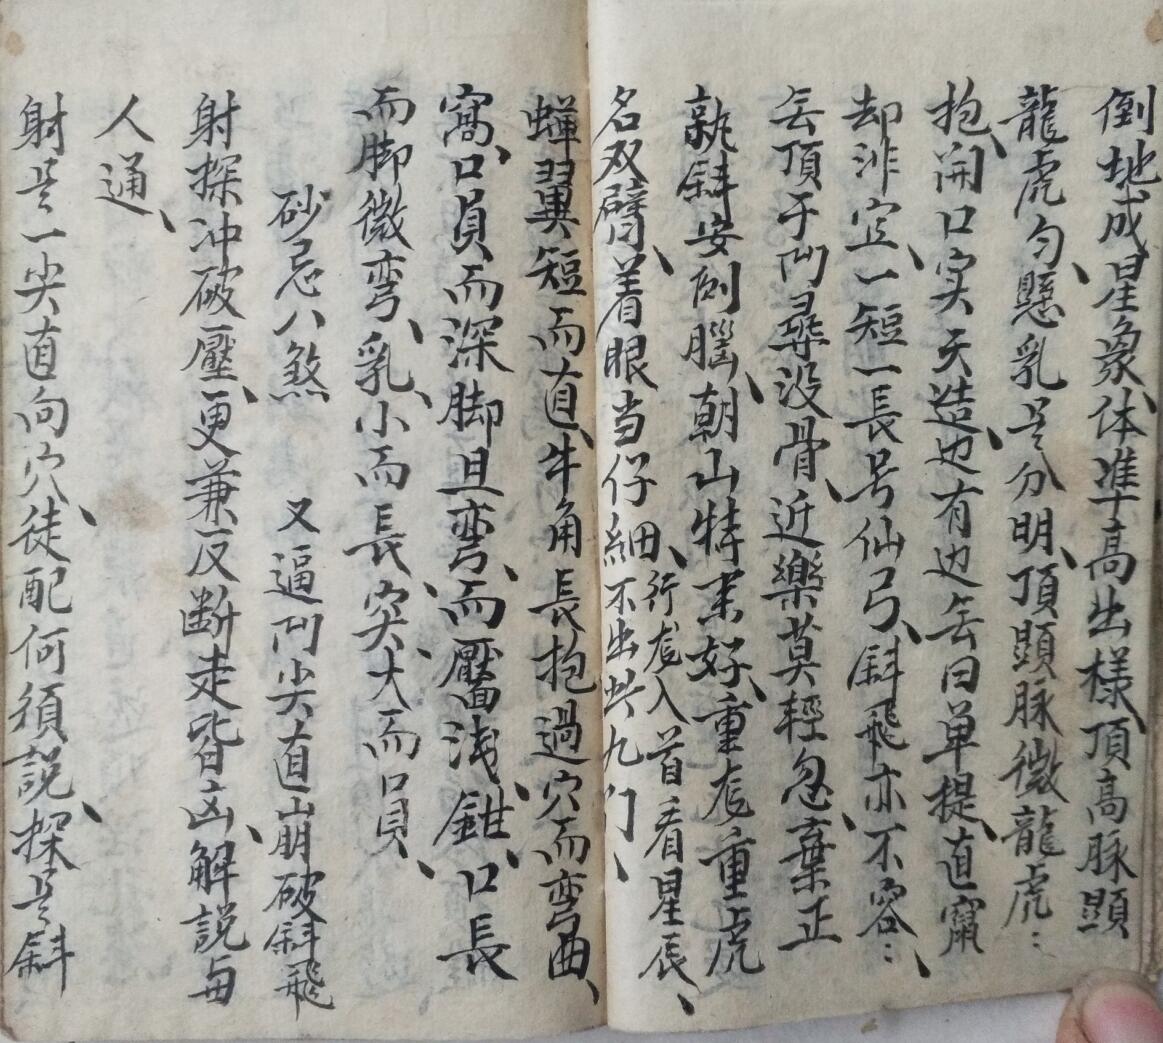 倒地成星象体準高出様、頂高脉顕
龍虎勻、懸乳是分明、頂顕脉微龍虎：
抱、開口实天造、边有边无曰单提、直竄
却非宜、一短一長号仙弓、斜飛亦不容：、
无頂于门尋没骨、近樂莫輕忽、棄正
就斜安倒腦、朝山特来好、重龙重虎
名双臂、着眼当仔細、不出此九门、
行龙入首看星辰、
蟬翼短而直、牛角長抱過穴而弯曲、
窩、口員而深脚且弯、而靨面浅、鉗、口長
而脚微弯、乳、小而長、突、大而口員、
砂忌八煞 又逼门尖直崩破斜飛
射探冲破壓、更兼反断走皆凶、解説与
人通、
射是一尖直向穴、徒配何須説、探是斜